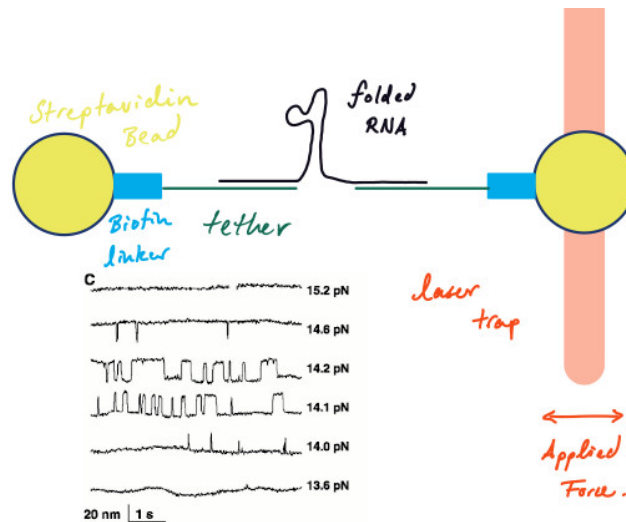 Streptavidin
Bead
folded
RNA
Biotin
linker
tether
laser
trap
Applied
Force.
C
15.2 pN
14.6 pN
14.2 pN
14.1 pN
14.0 pN
13.6 pN
20 nm
1 s